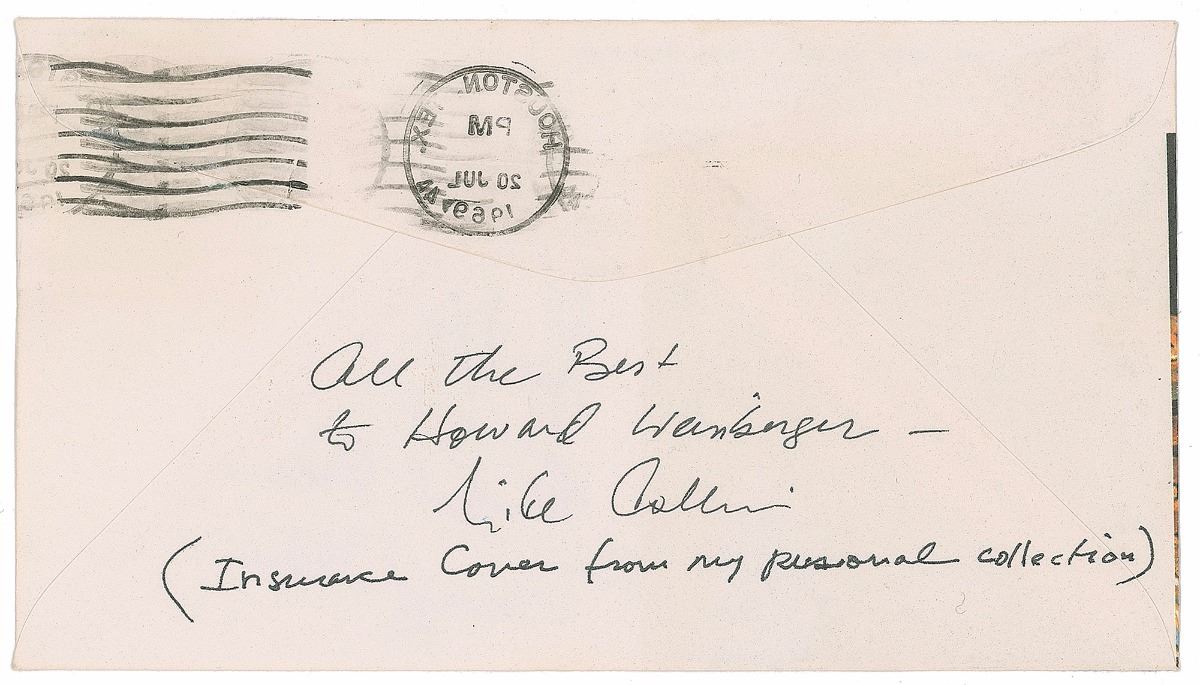 HOUSTON
TEX.
PM
20 JUL
1969
All the Best
to Howard Weinberger —
Mike Collins
(Insurance Cover from my personal collection)